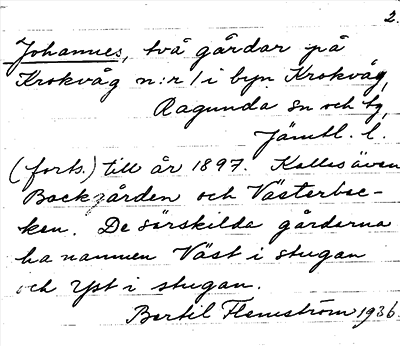 2.
Johannes, två gårdar på
Krokvåg n:r 1 i byn Krokvåg,
Ragunda sn och tg,
Jämtl. l.
(forts.) till år 1897. Kallas även
Backgården och Västerbac-
ken. De särskilda gårdarna
ha namnen Väst i stugan
och Yst i stugan.
Bertil Flemström 1936.